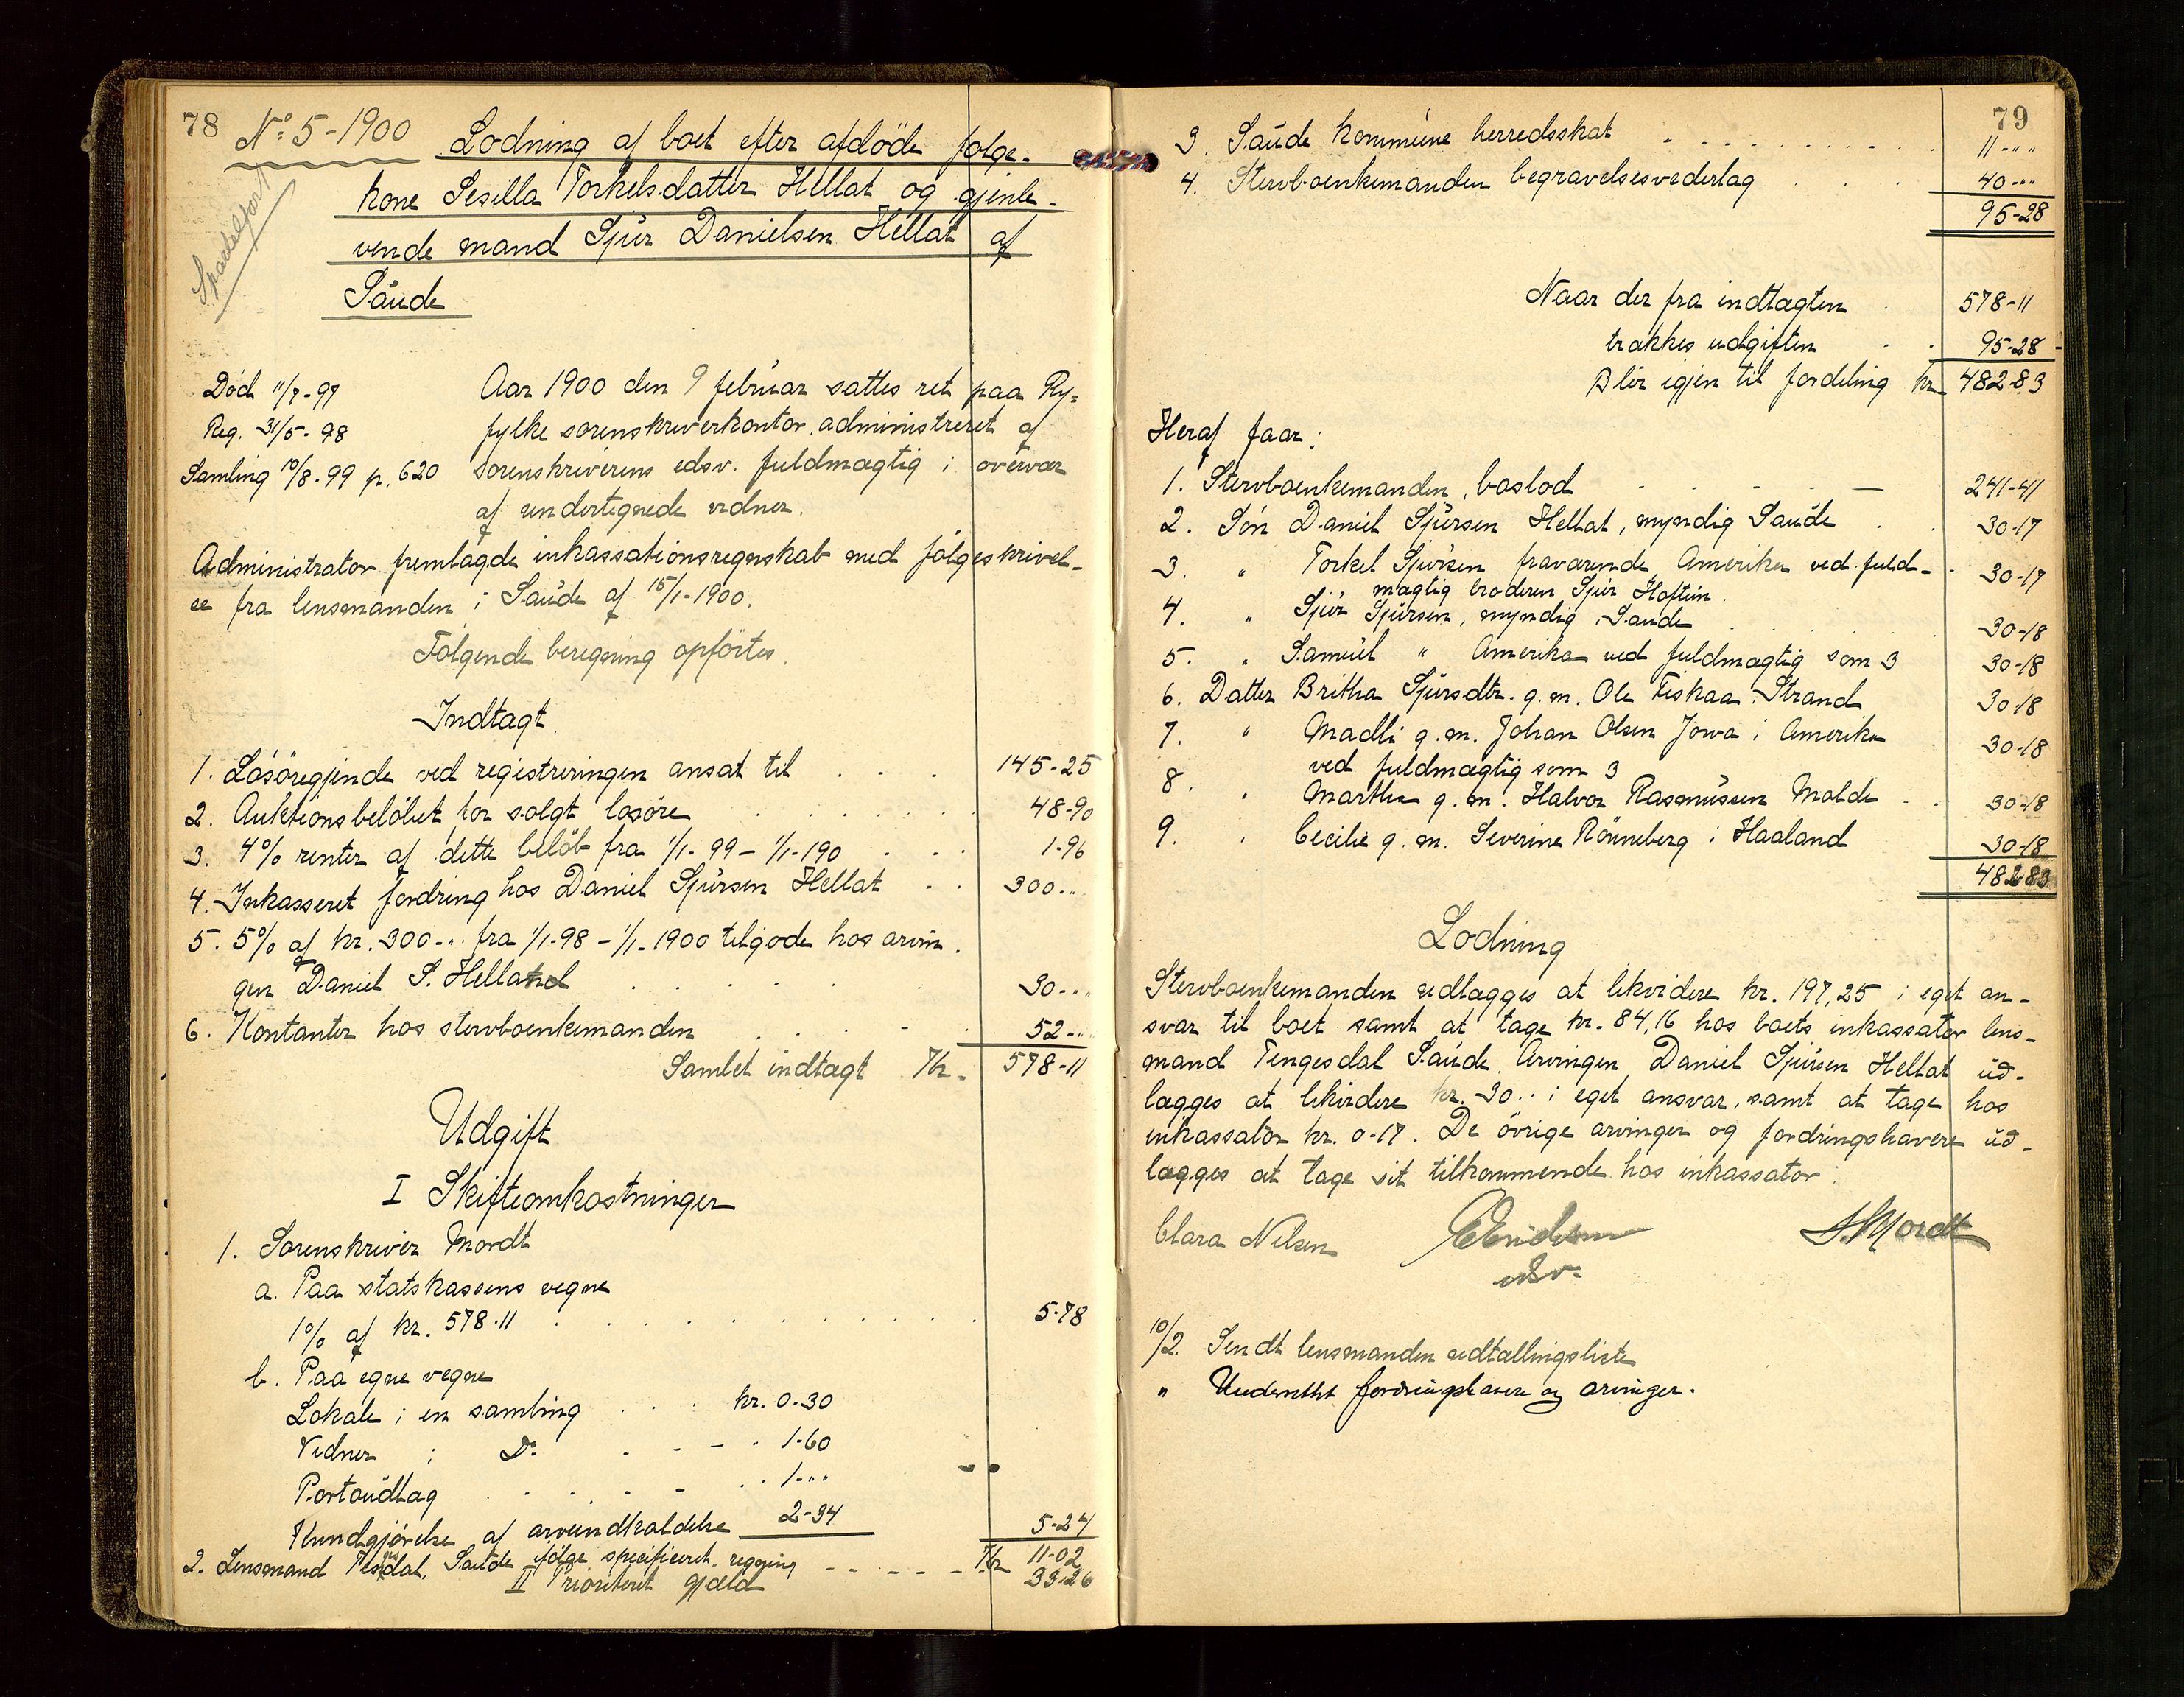 78
No 5-1900 Lodning af boet efter afdöde folge-
kone Sesilla Torkelsdatter Hellat og gjenle-
vende mand Sjur Danielsen Hellat af
Saude
Död 11/7-97
Reg. 31/5-98
Samling 10/8-99 p. 620
Aar 1900 den 9 februar sattes ret paa Ry-
fylke sorenskriverkontor, administreret af
sorenskriverens edsv. fuldmægtig i overvær
af undertegnede vidner.
Administrator fremlagde inkassationsregnskab med fölgeskrivel-
se fra lensmanden i Saude af 15/1-1900.
Følgende beregning opførtes.
Indtægt
1. Lösöregjende ved registreringen ansat til . . . 145-25
2. Auktionsbelöbet for solgt lösöre . . . 48-90
3. 4% renter af dette belöb fra 1/1-99 - 1/1-190 . . . 1-96
4. Inkasseret fordring hos Daniel Sjursen Hellat . . 300-"
5. 5% af kr. 300-" fra 1/1-98 - 1/1-1900 tilgode hos arvin-
gen Daniel S. Helland . . . 30-"
6. Kontanter hos stervboenkemanden . . . 52-"
Samlet indtægt Kr. 578-11
Udgift
I Skifteomkostninger
1. Sorenskriver Mordt
a. Paa statskassens vegne
1% af kr. 578-11 . . . 5-78
b. Paa egne vegne
Lokale i en samling . . . kr. 0-30
Vidner i Do . . . 1-60
Portoudlæg . . . 1-"
Kundgjörelse af arveindkaldelse 2-34 5-24
Kr 11-02
2. Lensmand Tengesdal, Saude ifölge specificeret regning - - - 33-26
II Prioriteret gjæld
79
3. Saude kommune herredsskat . . . 11-"
4. Stervboenkemanden begravelsesvederlag . . . 40-"
95-28
Naar der fra indtægten 578-11
trækkes udgiften . . 95-28
Blir igjen til fordeling kr 482-83
Heraf faar:
1. Stervboenkemanden, boslod . . . 241-41
2. Sön Daniel Sjursen Hellat, myndig Saude . . 30-17
3. " Torkel Sjursen fraværende Amerika ved fuld- 30-17
mægtig broderen Sjur Hoftun.
4. " Sjur Sjursen, myndig, Saude . . . 30-18
5. " Samuel " Amerika ved fuldmægtig som 3 30-18
6. Datter Britha Sjursdtr. g. m. Ole Fiskaa i Strand 30-18
7. " Madli g. m. Johan Olsen Jowa i Amerika 30-18
ved fuldmægtig som 3
8. " Martha g. m. Halvor Rasmussen Molde . . 30-18
9. " Cecilie g. m. Severine Rönneberg i Haaland 30-18
482 83
Lodning
Stervboenkemanden udlægges at likvidere kr. 197,25 i eget an-
svar til boet samt at tage kr. 84,16 hos boets inkassator lens-
mand Tengesdal Saude. Arvingen Daniel Sjursen Hellat ud-
lægges at likvidere kr. 30 " i eget ansvar, samt at tage hos
inkassator kr. 0-17. De övrige arvinger og fordringshavere ud-
lægges at tage sit tilkommende hos inkassator.
Clara Nelsen edsv. Mordt
10/2. Sendt lensmanden udtællingsliste
" Underrettet fordringshavere og arvinger.